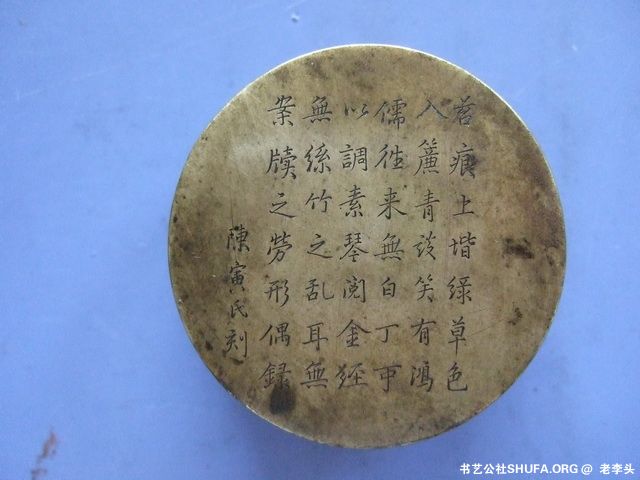 苔痕上堦綠草色
入簾青談笑有鴻
儒徃来無白丁可
以調素琴閱金経
無絲竹之乱耳無
案牘之勞形偶録
陳寅民刻
书艺公社SHUFA.ORG @ 老李头